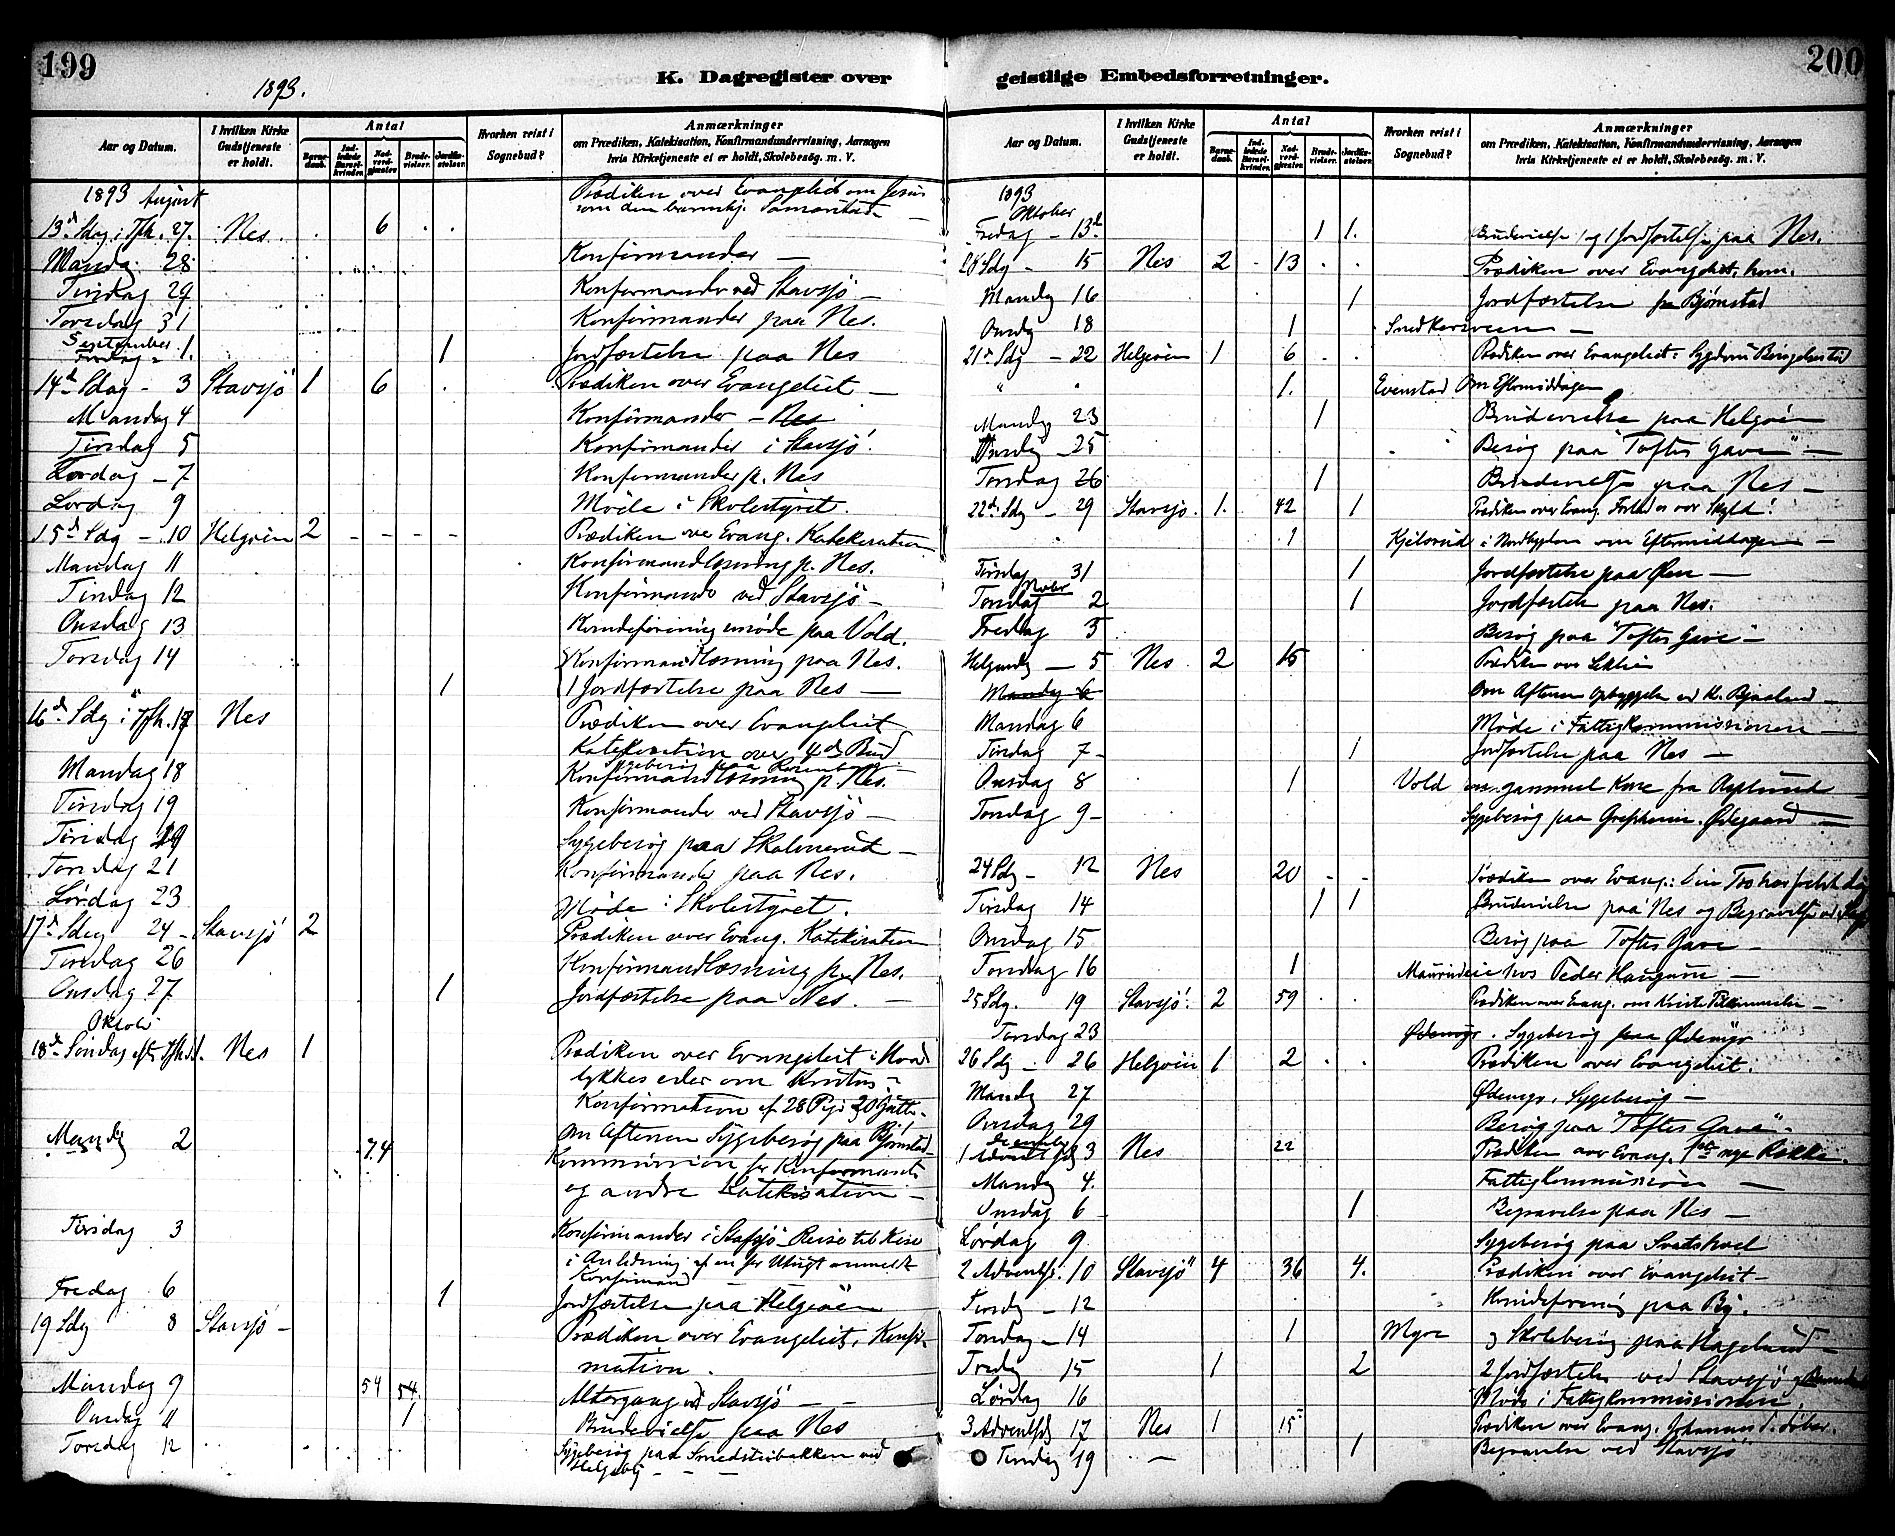 199
1893.
K. Dagregister over
Aar og Datum.
I hvilken Kirke Gudstjeneste er holdt.
Antal
Barnedaab.
Indledede Barselkvinder.
Nadverdgjæster.
Brudevielser.
Jordfæstelser.
Hvorhen reist i Sognebud?
Anmærkninger
om Prædiken, Katekisation, Konfirmandundervisning, Aarsagen
hvis Kirketjeneste ei er holdt, Skolebesøg. m. V.
1893 August Prædiken over Evangeliet om Jesus
som den barmhj. Samaritan
13d Sdag i Tfh. 27. Nes. 6
Mandag 28 Konfirmander —
Tirsdag 29 Konfirmander ved Stavsjø —
Torsdag 31 Konfirmander paa Nes.
September
Fredag 1. 1 Jordfæstelse paa Nes
14d Sdag - 3 Stavsjö 1 6 Prædiken over Evangeliet —
Mandag 4 Konfirmander - Nes
Tirsdag 5 Konfirmander i Stavsjö.
Lørdag - 7 Konfirmander p. Nes
Lordag 9 Møde i Skolestyret.
15d Sdg - 10 Helgøen 2 - - - - Prædiken over Evang. Katekisation
Mandag 11 Konfirmandlæsning p. Nes.
Tirsdag 12 Konfirmander ved Stavsjö -
Onsdag 13 Kvindeforeningsmøde paa Vold.
Torsdag 14 Konfirmandlæsning paa Nes.
1 1 Jordfæstelse paa Nes —
16d Sdg i Tfh. 17 Nes Prædiken over Evangeliet
Katekisation over 4de Bud
Sygebesøg paa
Mandag 18 Konfirmandlæsning p. Nes.
Tirsdag 19 Konfirmander ved Stavsjö —
Tirsdag 19 Sygebesøg paa Skolmerud —
Torsdag 21 Konfirmander paa Nes.
Lørdag 23 Møde i Skolestyret.
17d Sdag 24 - Stavsjö 2 Prædiken over Evang. Katekisation
Tirsdag 26 Konfirmandlæsning p. Nes.
Onsdag 27 1 Jordfæstelse paa Nes. —
Oktober
18de Søndag eft. Tfh. 1. Nes 1 Prædiken over Evangeliet: Hvad
tykkes eder om Kristus?
Konfirmation af 28 Piger 20 Gutter.
Om Aftenen Sygebesøg paa Bjørnstad
Mandag 2 74 Kommunion for Konfirmanter
og andre Katekisation —
Tirsdag 3 Konfirmander i Stafsjö. Reise til Kise
i Anledning af en for Utugt anmeldt
Konfirmand
Fredag 6 1 Jordfæstelse paa Helgøen
19 Sdg 8 Stavsjö - Prædiken over Evangeliet. Konfir-
mation.
Mandag 9 54 54. Altergang ved Stavsjö - -
Onsdag 11 1 Brudevielse paa Nes
Torsdag 12 Sygebesøg paa Smedstubakken ved
Helgeby - - -
200
geistlige Embedsforretninger.
Aar og Datum.
I hvilken Kirke Gudstjeneste er holdt.
Antal
Barnedaab.
Indledede Barselkvinder.
Nadverdgjæster.
Brudevielser.
Jordfæstelser.
Hvorhen reist i Sognebud?
Anmærkninger
om Prædiken, Katekisation, Konfirmandundervisning, Aarsagen
hvis Kirketjeneste ei er holdt, Skolebesøg m. V.
1893
Oktober
Fredag - 13d. 1 1. Brudevielse 1 og 1 Jordfæstelse paa Nes.
20 Sdg - 15 Nes 2 13 Prædiken over Evangeliet, kom.
Mandg 16 1 Jordfæstelse fra Bjørnstad
Onsdg 18 1 Snedkersveen —
21d Sdg - 22 Helgøen 1 6 Prædiken over Evangeliet:
" 1. Evenstad Om Eftermiddagen
Mandag 23 1 Brudevielse paa Helgøen
Onsdg 25 Besøg paa "Toftes Gave" —
Torsdag 26 1 Brudevielse paa Nes —
22d Sdg - 29 Stavsjø. 1. 42 1 Prædiken over Evang. Forlad os vor Skyld!
1 Kjelsrud i Nordbygden om Eftermiddagen —
Tirsdag 31 1 Jordfæstelse paa Øen —
Novbr
Torsdag 2 1 Jordfæstelse paa Nes.
Fredag 3 Besøg paa "Toftes Gave" —
Helgendg - 5 Nes 2 15 Prædiken over Lektien
Mandag 6 Om Aftenen Opbyggelse
Mandag 6 Møde i Fattigkommissionen —
Tirsdag 7 - 1 Jordfæstelse paa Nes —
Onsdag 8 1 Vold en gammel Kone fra
Torsdag 9 - Sygebesøg paa Grefsheim. Ødegaard —
24 Sdg - 12 Nes 20 - - Prædiken over Evang.: Din Tro har frelst dig
Tirsdag 14 1 1 Brudevielse paa Nes og Begravelse ved
Onsdag 15 Besøg paa Toftes Gave —
Torsdag 16 1 hos Peder Haugom —
25 Sdg. 19 Stavsjö. 2 59 Prædiken over Evang. om Kristi —
Torsdag 23 Ødemyr. Sygebesøg paa Ødemyr
26 Sdg - 26 Helgøen 1 2 Prædiken over Evangeliet.
Mandg 27 Ødemyr, Sygebesøg —
Onsdag 29 Besøg paa "Toftes Gave".
December
1 Advents Sdg 3 Nes 22 Prædiken over Evang. første nye Række.
Mandg 4. Fattigkommission —
Onsdag 6 - 1 Begravelse paa Nes —
Lørdag 9 Sygebesøg paa
2 Adventsd. 10 Stavsjö 4 36 4. Prædiken over Evangeliet —
Tirsdg - 12 Kvindeforening paa By.
Torsdag - 14 1 Myre og Skolebesøg paa Hageland —
Fredag 15 1 2 2 Jordfæstelser ved Stavsjö
Lørdag 16 Møde i Fattigkommissionen
3 Adventsdg 17 Nes 1 15 Prædiken over Evang. Johannes d. Døber.
Tirsdag 19 — 1 Begravelse ved Stavsjö